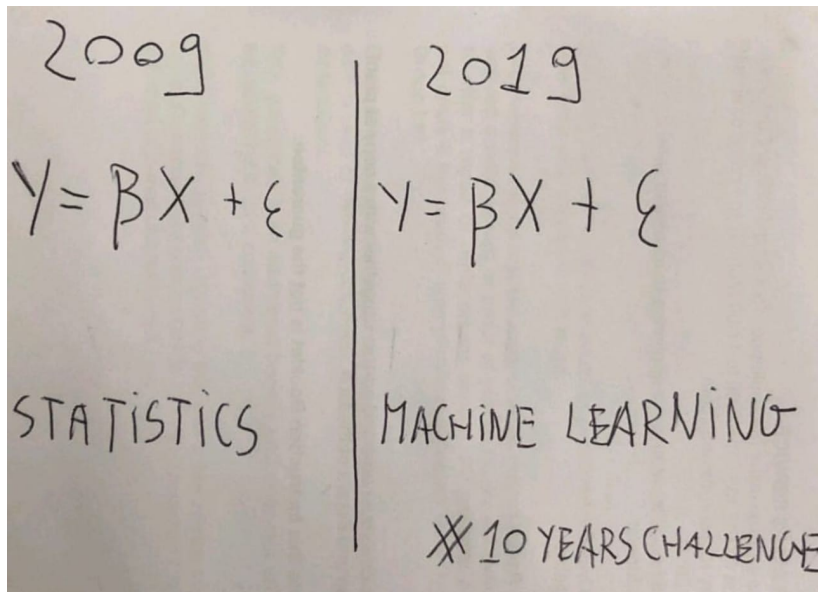 2009
Y = βX + ε
STATiSTiCS
2019
Y = βX + ε
MACHiNE LEARNiNG
#10 YEARS CHALLENGE